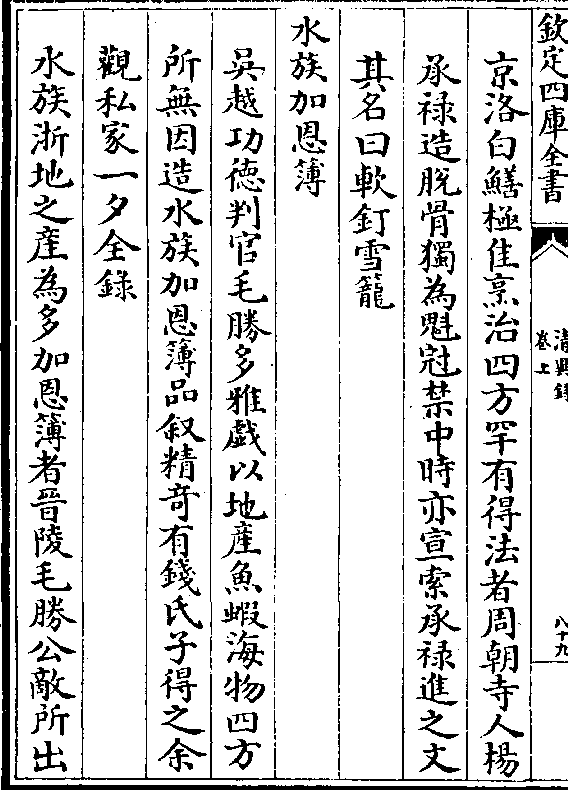 欽定四庫全書
清異録
卷上
八十九
京洛白鱔極佳烹治四方罕有得法者周朝寺人楊
承禄造脫骨獨為魁冠禁中時亦宣索承禄進之文
其名曰軟釘雪籠
水族加恩簿
吳越功德判官毛勝多雅戲以地產魚蝦海物四方
所無因造水族加恩簿品叙精奇有錢氏子得之余
觀私家一夕全錄
水族浙地之産為多加恩簿者晉陵毛勝公敵所出